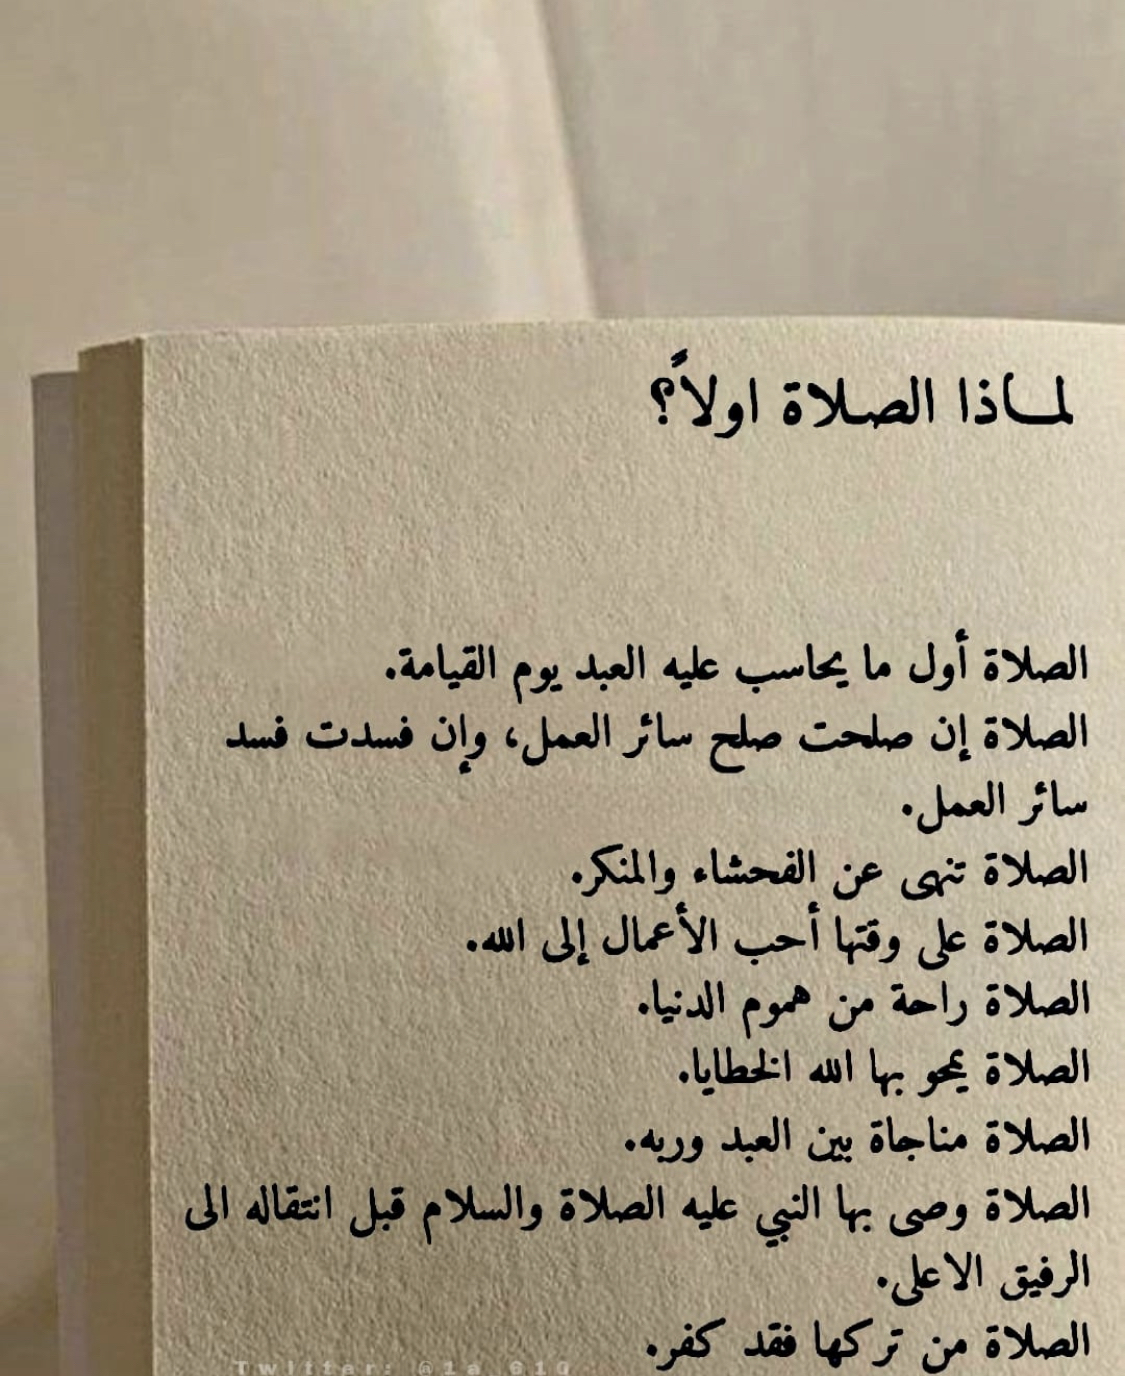 لماذا الصلاة اولاً؟
الصلاة أول ما يحاسب عليه العبد يوم القيامة.
الصلاة إن صلحت صلح سائر العمل، وإن فسدت فسد
سائر العمل.
الصلاة تنهى عن الفحشاء والمنكر.
الصلاة على وقتها أحب الأعمال إلى الله.
الصلاة راحة من هموم الدنيا.
الصلاة يمحو بها الله الخطايا.
الصلاة مناجاة بين العبد وربه.
الصلاة وصى بها النبي عليه الصلاة والسلام قبل انتقاله الى
الرفيق الاعلى.
الصلاة من تركها فقد كفر.
Twitter: